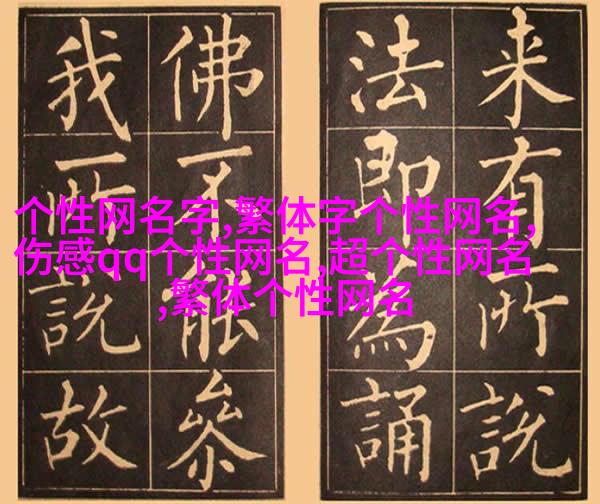 来有所說
法即為誦
佛不能參
我所說故
个性网名字,繁体字个性网名,
伤感qq个性网名,超个性网名
,繁体个性网名